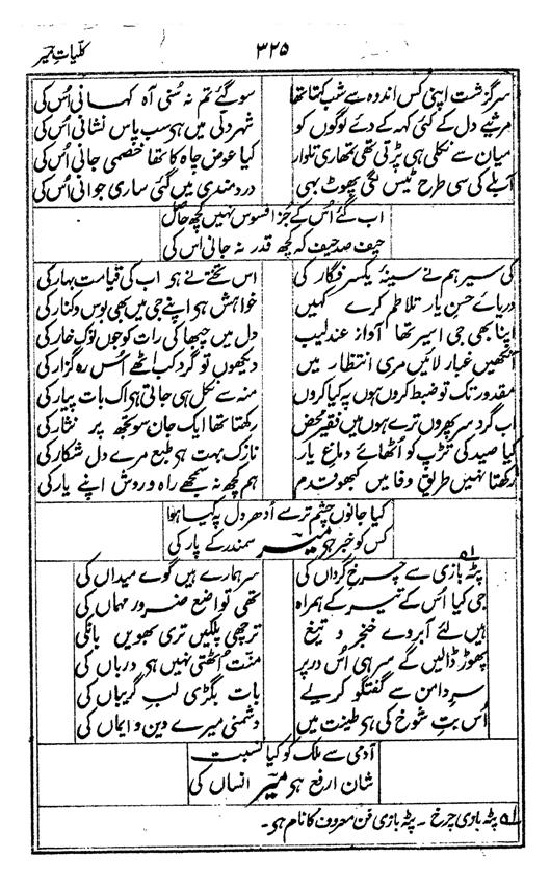 کلیاتِ میر
۳۲۵
سرگزشت اپنی کس اندوہ سے شب کہتا تھا سو گئے تم نہ سُنی آہ کہانی اُس کی
مرثیے دل کے کئی کہہ کے دئے لوگوں کو شہر دلّی میں ہے سب پاس نشانی اُس کی
میان سے نکلی ہی پڑتی تھی تمھاری تلوار کیا عوض چاہ کا تھا خصمی جانی اُس کی
آبلے کی سی طرح ٹیس لگی پھوٹ بہی دردمندی میں گئی ساری جوانی اُس کی
اب گئے اُس کے جُز افسوس نہیں کچھ حاصل
حیف صد حیف کہ کچھ قدر نہ جانی اس کی
کی سیر ہم نے سینۂ یکسر فگار کی اس تختے نے ہو اب کی قیامت بہار کی
دریائے حسنِ یار تلاطم کرے کہیں خواہش ہو اپنے جی میں بھی بوس و کنار کی
اپنا بھی جی اسیر تھا آوازِ عندلیب دل میں چبھا کی رات کو جوں نوک خار کی
آنکھیں غبار لائیں مری انتظار میں دیکھوں تو گرد کب اٹھے اُس رہ گزار کی
مقدور تک تو ضبط کروں ہوں پہ کیا کروں منہ سے نکل ہی جاتی ہو اک بات پیار کی
اب گرد سر پھروں ترے ہوں میں فقیر محض رکھتا تھا ایک جان سو تجھ پر نثار کی
کیا صید کی تڑپ کو اُٹھائے دماغِ یار نازک بہت ہو طبع مرے دل شکار کی
رکھتا نہیں طریق وفا میں کبھو قدم ہم کچھ نہ سمجھے راہ و روش اپنے یار کی
کیا جانوں چشم تر سے اُدھر دل پہ کیا ہوا
کس کو خبر ہو میرؔ سمندر کے پار کی
پٹہ بازی سے چرخ گرداں کی ۱؎ سر ہمارے ہیں گوے میداں کی
جی کیا اُس کے تیر کے ہمراہ تھی تواضع ضرور مہماں کی
ہیں لئے آبروے خنجر و تیغ ترچھی پلکیں تری بھویں بانکی
پھوڑ ڈالیں گے سر ہی اُس در پر منّت اُٹھتی نہیں ہو درباں کی
سر دامن سے گفتگو کریے بات بگڑی لبِ گریباں کی
اُس بتِ شوخ کی ہی طینت میں دشمنی میرے دین و ایماں کی
آدمی سے ملک کو کیا نسبت
شان ارفع ہو میرؔ انساں کی
۱؎ پٹہ بازی چرخ ۔ پٹہ بازی فن معروف کا نام ہو۔